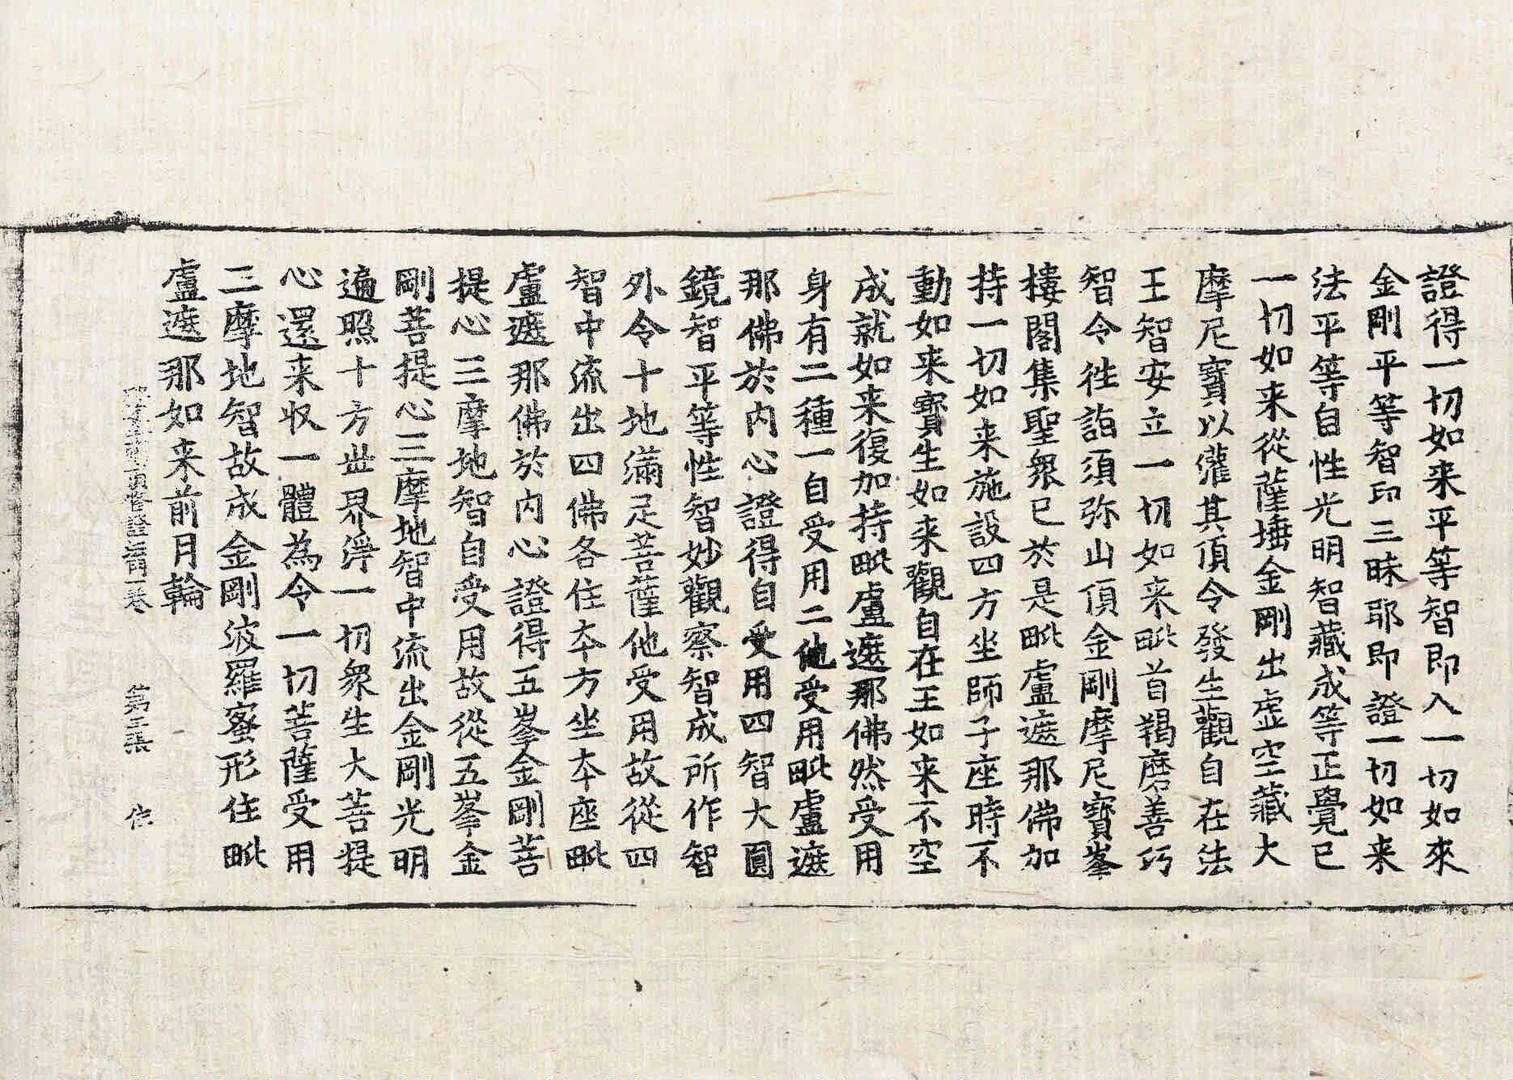 證得一切如来平等智即入一切如來
金剛平等智印三昧耶即證一切如来
法平等自性光明智藏成等正覺已
一切如来從薩埵金剛出虚空藏大
摩尼寶以灌其頂令發生觀自在法
王智安立一切如来毗首羯磨善巧
智令徃詣須弥山頂金剛摩尼寶峯
樓閣集聖衆已於是毗盧遮那佛加
持一切如来施設四方坐師子座時不
動如来寶生如来觀自在王如来不空
成就如来復加持毗盧遮那佛然受用
身有二種一自受用二他受用毗盧遮
那佛於内心證得自受用四智大圓
鏡智平等性智妙觀察智成所作智
外令十地滿足菩薩他受用故從四
智中流出四佛各住夲方坐夲座毗
盧遮那佛於内心證得五峯金剛菩
提心三摩地智自受用故從五峯金
剛菩提心三摩地智中流出金剛光明
遍照十方世界淨一切衆生大菩提
心還来収一體為令一切菩薩受用
三摩地智故成金剛波羅蜜形住毗
盧遮那如来前月輪
頂瑜證 一卷 第三張 作